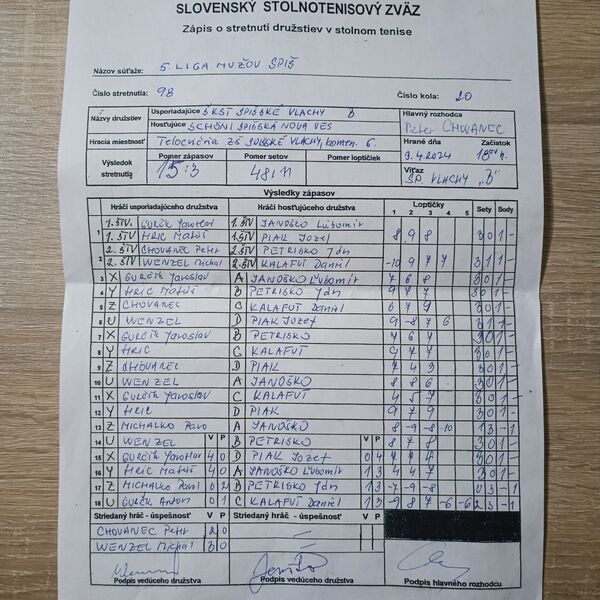 SLOVENSKÝ STOLNOTENISOVÝ ZVÄZ
Zápis o stretnutí družstiev v stolnom tenise
Názov súťaže: 5. LIGA MUŽOV SPIŠ
Číslo stretnutia: 98 Číslo kola: 20
Názvy družstiev Usporiadajúce ŠKST SPIŠSKÉ VLACHY B Hlavný rozhodca
Hosťujúce SCHÖNI SPIŠSKÁ NOVÁ VES Peter CHOVANEC
Hracia miestnosť Telocvičňa ZŠ SPIŠSKÉ VLACHY, komen. 6. Hrané dňa Začiatok
Výsledok stretnutia Pomer zápasov Pomer setov Pomer loptičiek 3.4.2024 18 00 h.
15:3 48:11 Víťaz SP. VLACHY "B"
Výsledky zápasov
Hráči usporiadajúceho družstva Hráči hosťujúceho družstva Loptičky Sety Body
1 2 3 4 5
1 1.ŠTV. GURČÍK Jaroslav 1.ŠTV JANOŠKO Ľubomír
1.ŠTV HRIC Matúš 1.ŠTV PIAK Jozef 8 9 8 3 0 1 -
2 2.ŠTV CHOVANEC Peter 2.ŠTV PETRISKO Ján
2.ŠTV WENZEL Michal 2.ŠTV KALAFUT Daniel -10 9 7 7 3 1 1 -
3 X GURČÍK Jaroslav A JANOŠKO Ľubomír 7 6 8 3 0 1 -
4 Y HRIC Matúš B PETRISKO Ján 9 7 3 0 1 -
5 Z CHOVANEC C KALAFUT Daniel 6 7 9 3 0 1 -
6 U WENZEL D PIAK Jozef 9 -8 7 6 3 1 1 -
7 X GURČÍK Jaroslav B PETRISKO 7 6 7 3 0 1 -
8 Y HRIC C KALAFUT 9 7 7 3 0 1 -
9 Z CHOVANEC D PIAK 7 4 3 3 0 1 -
10 U WENZEL A JANOŠKO 8 8 6 3 0 1 -
11 X GURČÍK Jaroslav C KALAFUT 4 5 7 3 0 1 -
12 Y HRIC D PIAK 9 7 9 3 0 1 -
13 Z MICHALKO A JANOŠKO 8 -9 -8 -10 1 3 - 1
14 U WENZEL V P B PETRISKO V P 8 7 8 3 0 1 -
15 X GURČÍK Jaroslav 4 0 D PIAK Jozef 0 4 7 4 3 0 1 -
16 Y HRIC Matúš 4 0 A JANOŠKO Ľubomír 1 3 4 4 7 3 0 1 -
17 Z MICHALKO 0 2 B PETRISKO Ján 1 3 0 3 - 1
18 U GURČÍK Anton 0 1 C KALAFUT Daniel 1 3 -9 8 7 -6 -6 2 3 - 1
Striedaný hráč - úspešnosť V P Striedaný hráč - úspešnosť V P
CHOVANEC Peter 2 0
WENZEL Michal 3 0
Podpis vedúceho družstva Podpis vedúceho družstva Podpis hlavného rozhodcu